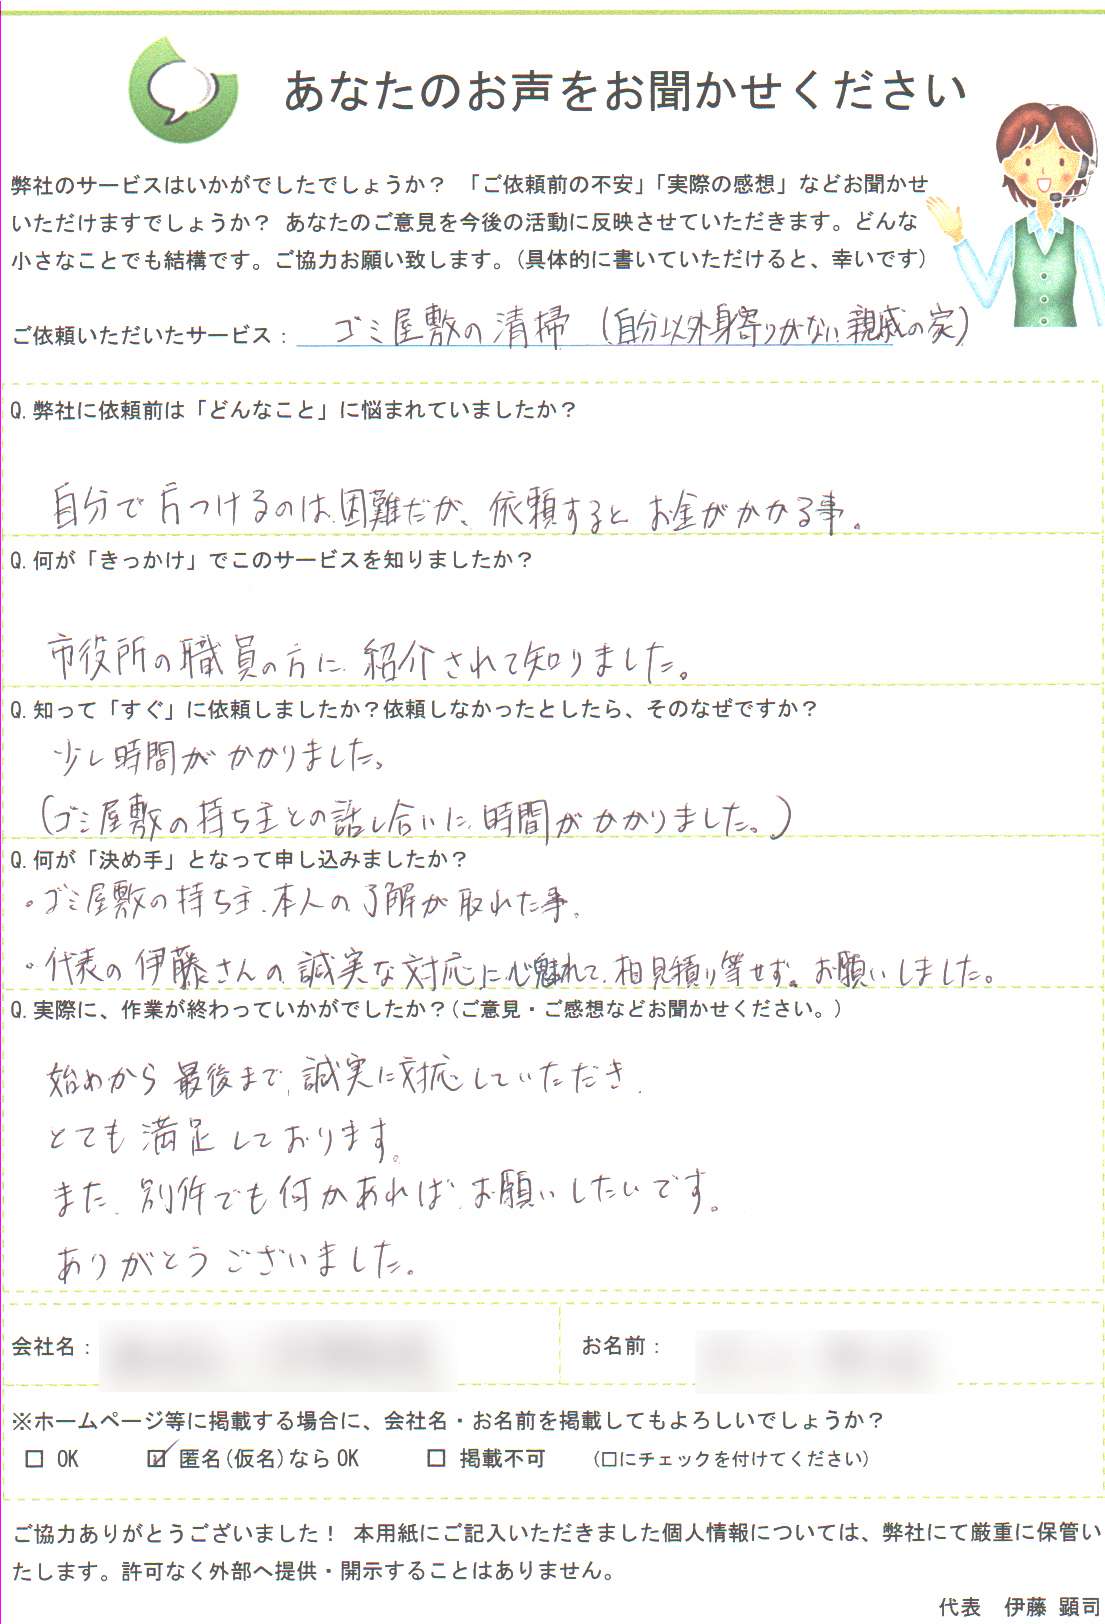 あなたのお声をお聞かせください
弊社のサービスはいかがでしたでしょうか？ 「ご依頼前の不安」「実際の感想」などお聞かせ
いただけますでしょうか？ あなたのご意見を今後の活動に反映させていただきます。どんな
小さなことでも結構です。ご協力お願い致します。(具体的に書いていただけると、幸いです)
ご依頼いただいたサービス： ゴミ屋敷の清掃 (自分以外身寄りがない親戚の家)
Q.弊社に依頼前は「どんなこと」に悩まれていましたか？
自分で片つけるのは、困難だが、依頼するとお金がかかる事。
Q.何が「きっかけ」でこのサービスを知りましたか？
市役所の職員の方に、紹介されて知りました。
Q.知って「すぐ」に依頼しましたか？依頼しなかったとしたら、そのなぜですか？
少し時間がかかりました。
(ゴミ屋敷の持ち主との話し合いに、時間がかかりました。)
Q.何が「決め手」となって申し込みましたか？
・ゴミ屋敷の持ち主、本人の了解が取れた事、
・代表の伊藤さんの、誠実な対応に心魅れて、相見積り等せず。お願いしました。
Q.実際に、作業が終わっていかがでしたか？(ご意見・ご感想などお聞かせください。)
始めから最後まで、誠実に対応していただき、
とても満足しております。
また、別件でも何かあれば、お願いしたいです。
ありがとうございました。
会社名： お名前：
※ホームページ等に掲載する場合に、会社名・お名前を掲載してもよろしいでしょうか？
□ OK ☑ 匿名(仮名)ならOK □ 掲載不可 (□にチェックを付けてください)
ご協力ありがとうございました！ 本用紙にご記入いただきました個人情報については、弊社にて厳重に保管い
たします。許可なく外部へ提供・開示することはありません。
代表 伊藤 顕司